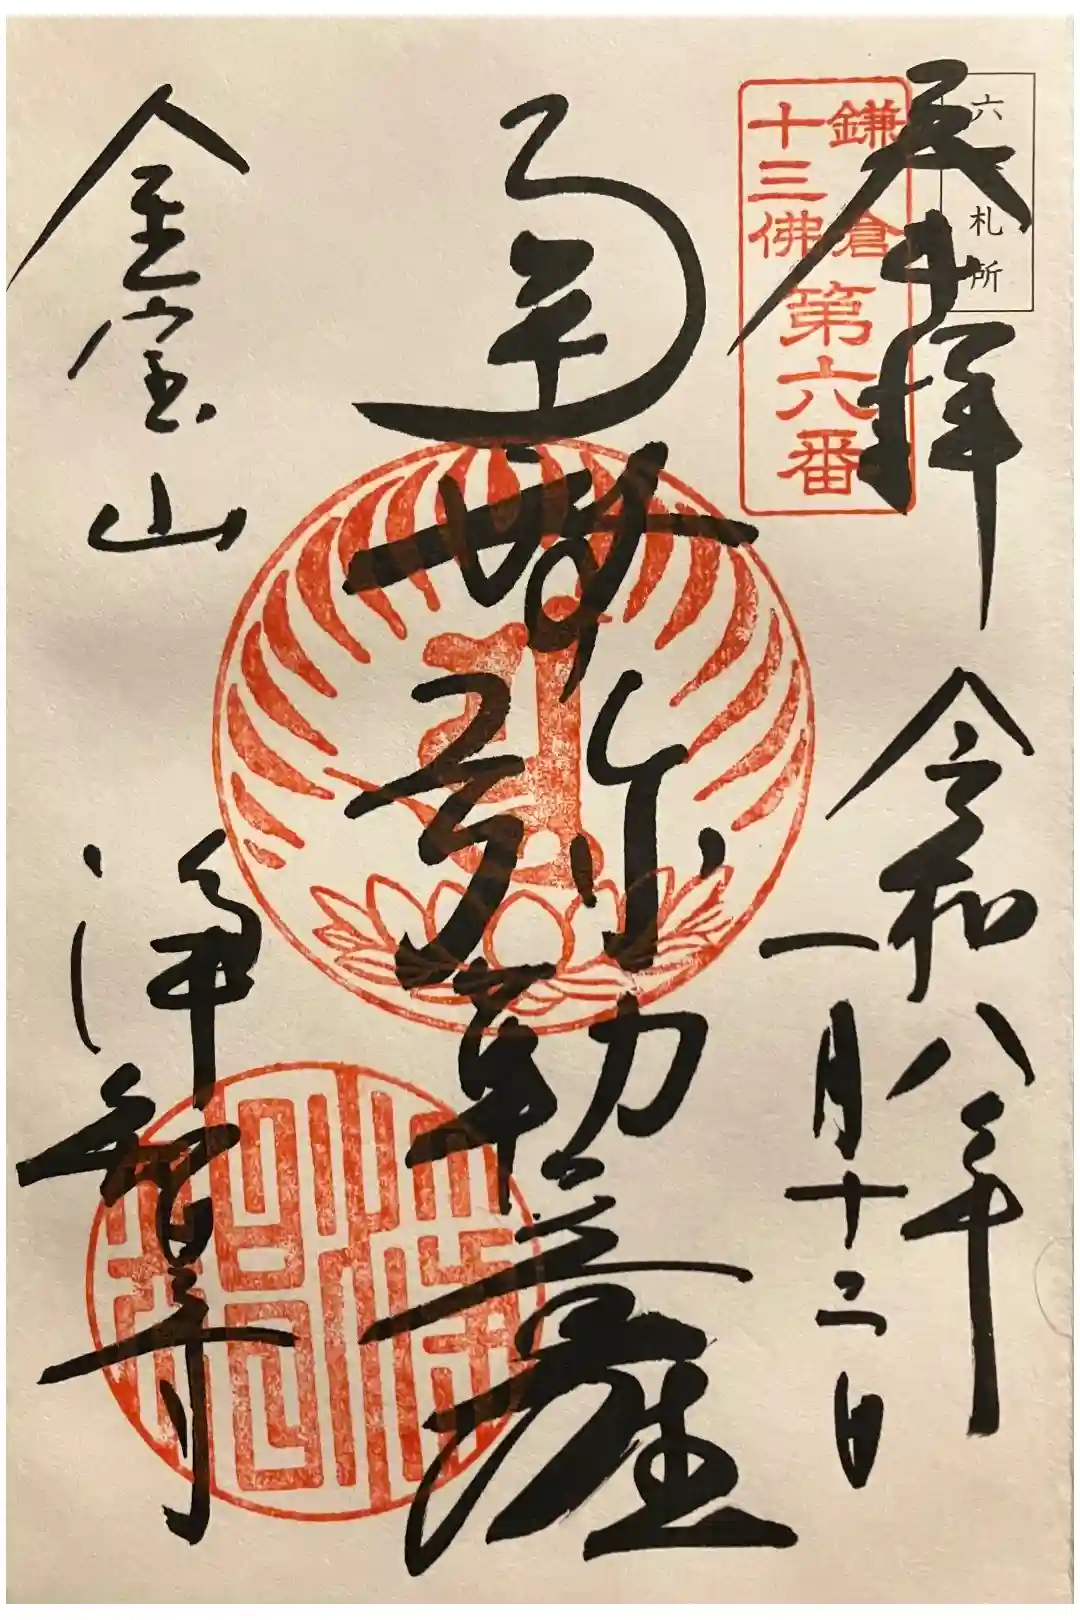 六札所
奉拝
鎌倉
十三佛
第六番
令和八年
一月十二日
南無弥勒菩薩
金宝山
浄智寺